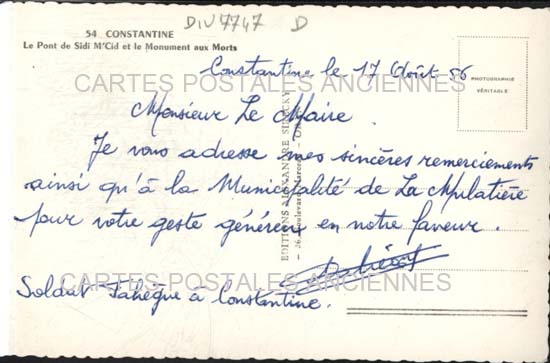 DIV7747 D
54 CONSTANTINE
Le Pont de Sidi M'Cid et le Monument aux Morts
PHOTOGRAPHIE
VÉRITABLE
Constantine le 17 Août 56
CARTES POSTALES ANCIENNES
Monsieur Le Maire.
Je vous adresse mes sincères remerciements
ainsi qu'à la Municipalité de La Mulatière
pour votre geste généreux en notre faveur.
CARTES POSTALES ANCIENNES
Soldat à Constantine.
EDITIONS ALEXANDRE